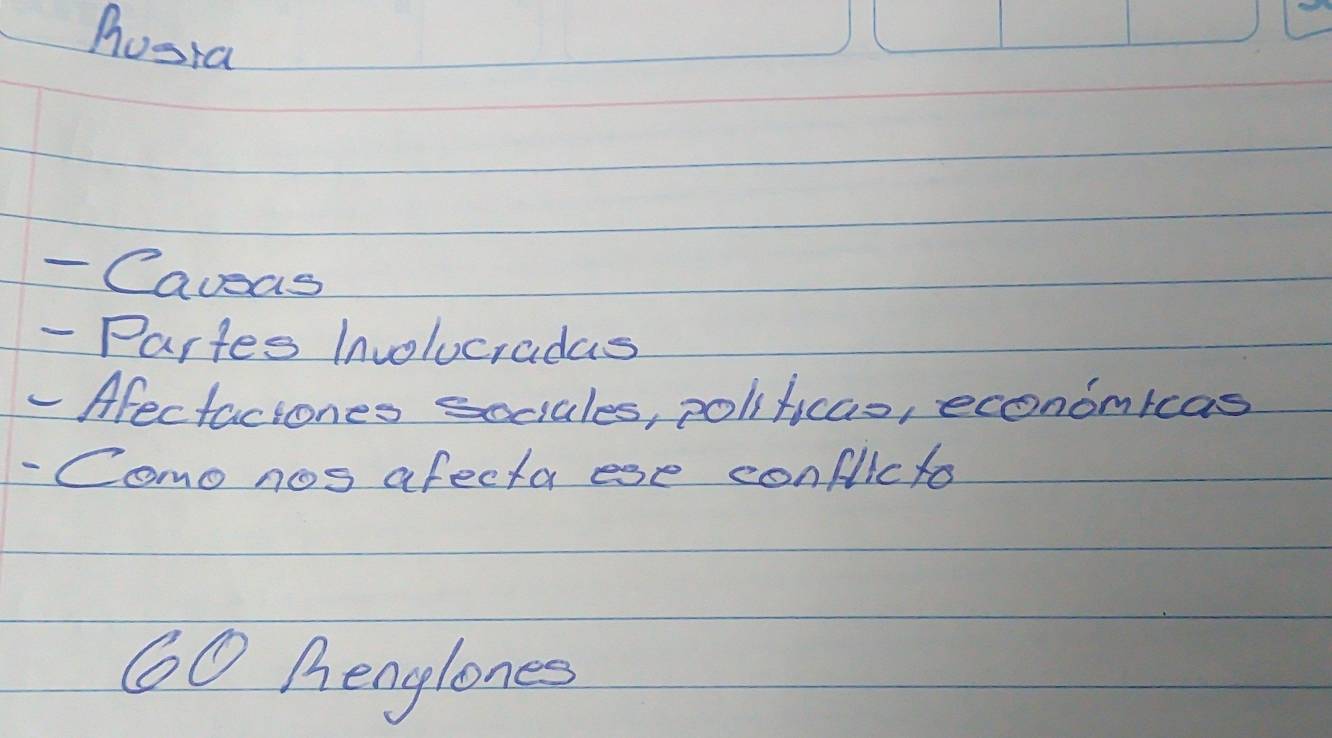 Rusia
- Causas
- Partes Involucradas
- Afectaciones sociales, politicas, económicas
- Como nos afecta ese conflicto
60 Renglones